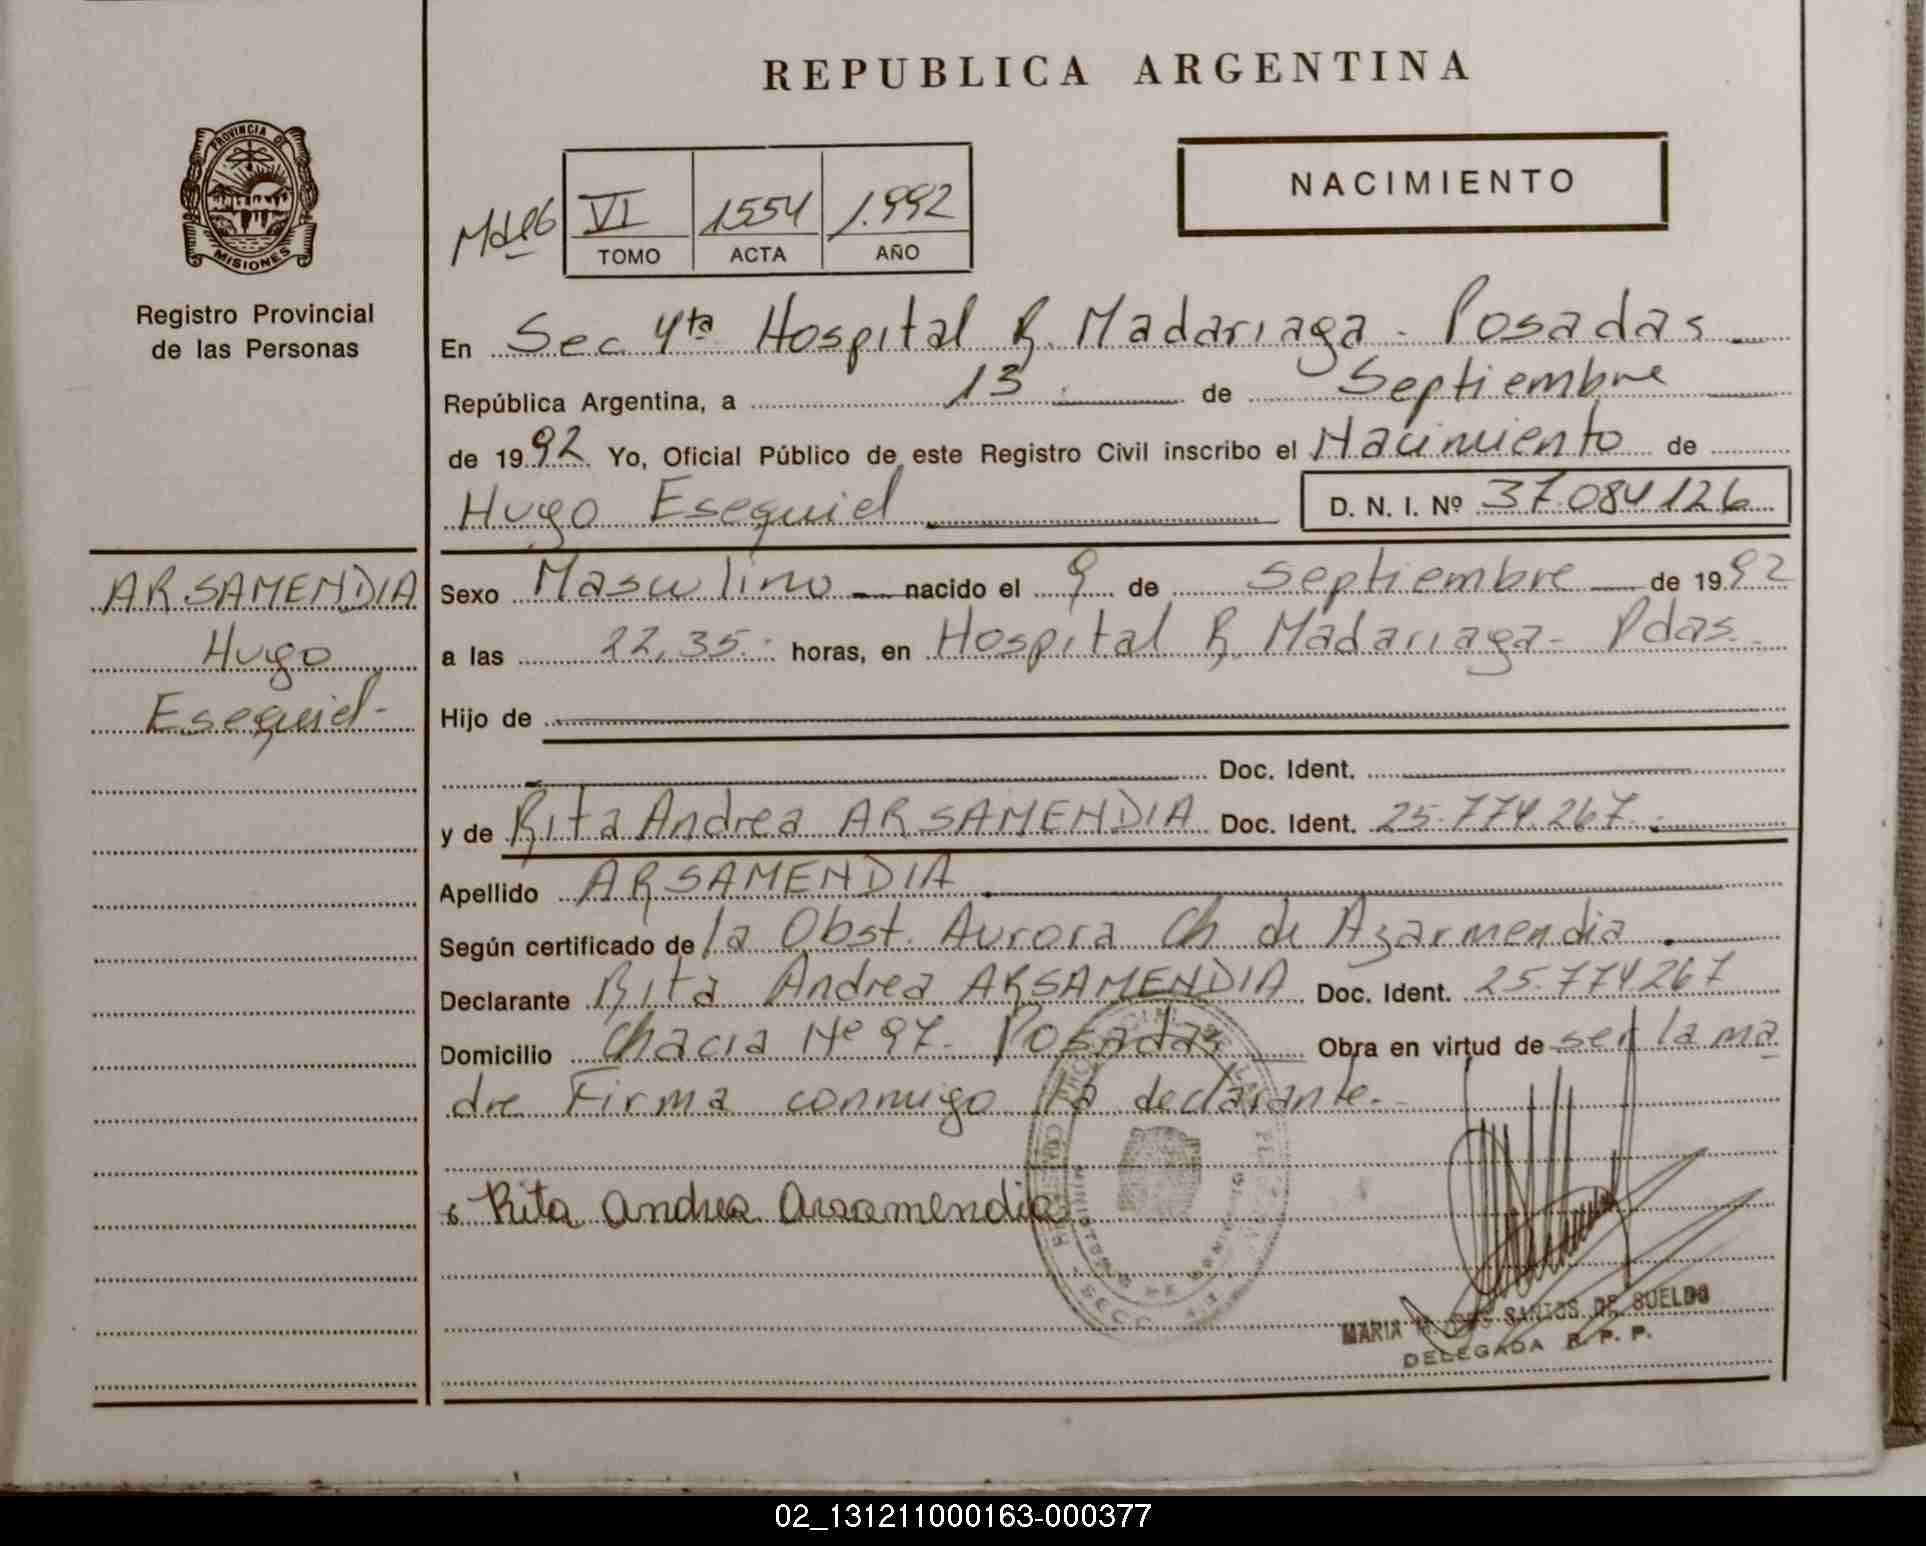 REPUBLICA ARGENTINA
PROVINCIA DE
MISIONES
Registro Provincial
de las Personas
VI 1554 1.992
TOMO ACTA AÑO
NACIMIENTO
En Sec 4ta Hospital R. Madariaga - Posadas
República Argentina, a 13 de Septiembre
de 1992 Yo, Oficial Público de este Registro Civil inscribo el Nacimiento de
Hugo Esequiel D. N. I. Nº 37.084.126
ARSAMENDIA
Hugo
Esequiel-
Sexo Masculino nacido el 9 de septiembre de 1992
a las 22,35. horas, en Hospital R. Madariaga - Pdas.
Hijo de
Doc. Ident.
y de Rita Andrea ARSAMENDIA Doc. Ident. 25.774.267.
Apellido ARSAMENDIA
Según certificado de la Obst. Aurora Ch de Azarmendia
Declarante Rita Andrea ARSAMENDIA Doc. Ident. 25.774267
Domicilio Chacra Nº 97. Posadas Obra en virtud de ser la ma
dre Firma conmigo la declarante.
Rita Andrea Arsamendia
MARIA DOS SANTOS DE SUELDO
DELEGADA R. P. P.
02_131211000163-000377